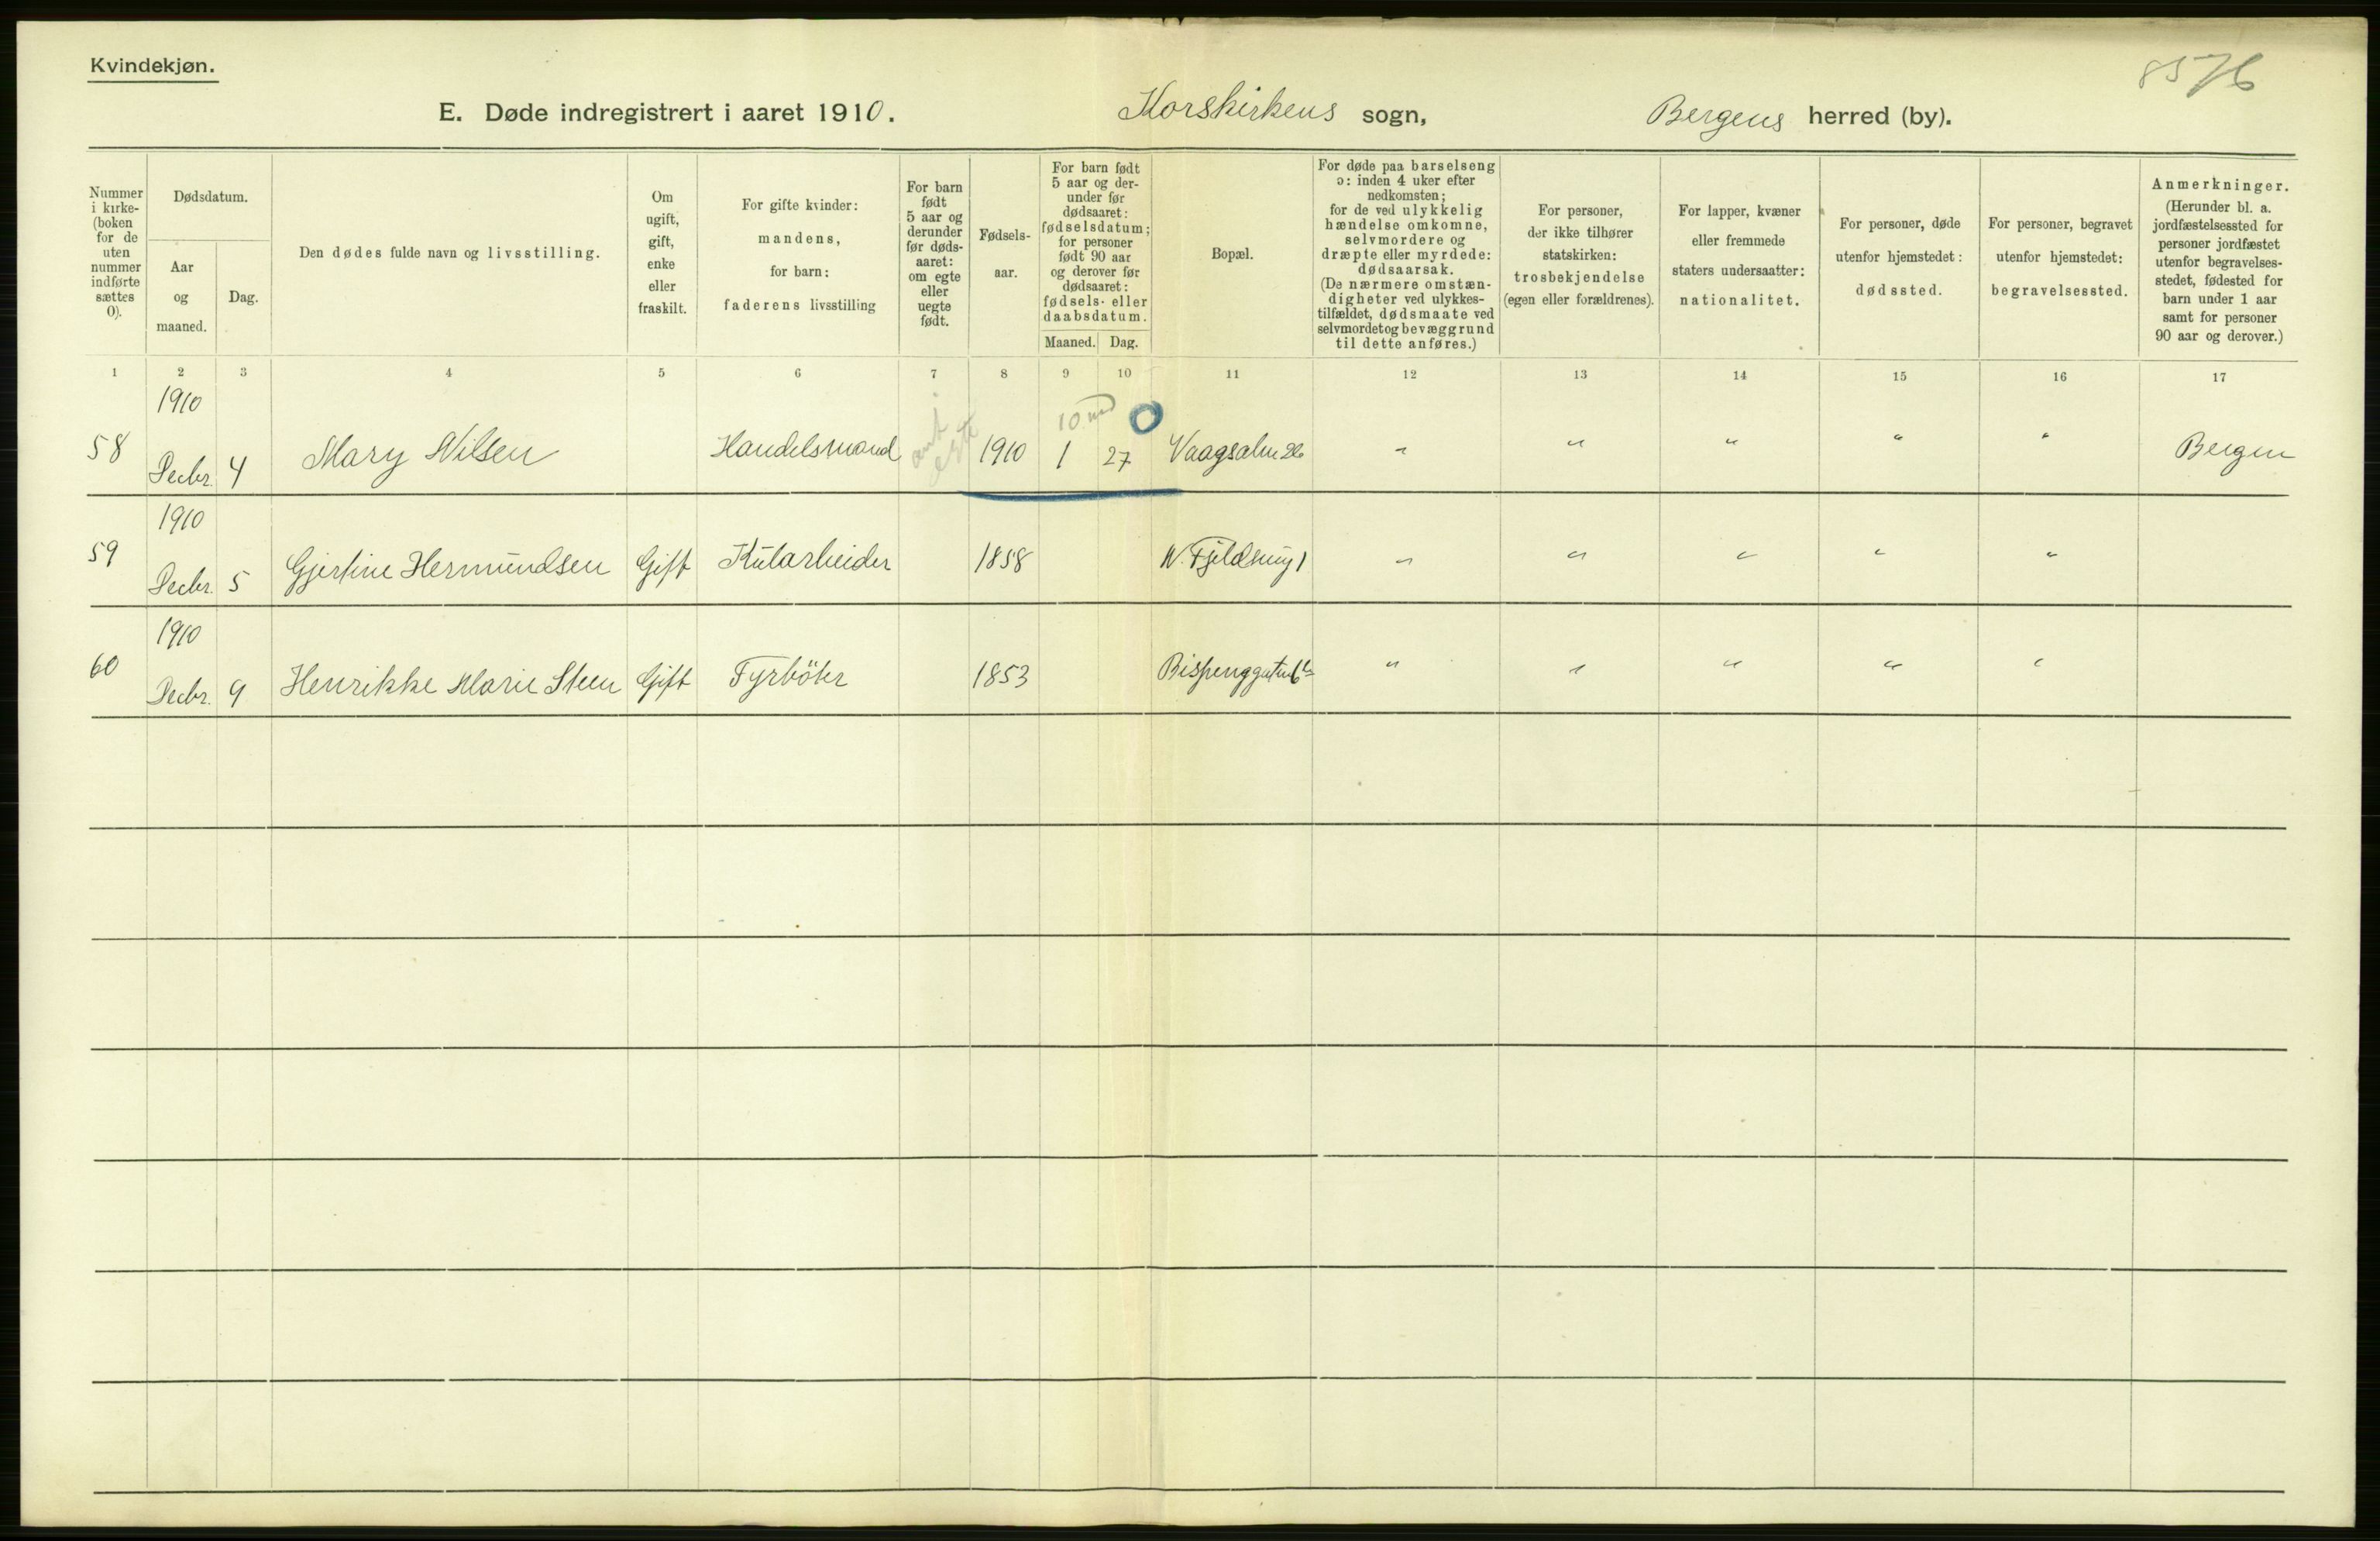 Kvindekjøn.
8576
E. Døde indregistrert i aaret 1910. Korskirkens sogn, Bergens herred (by).
Nummer
i kirke-
(boken
for de
uten
nummer
indførte
sættes
0).
Dødsdatum.
Aar
og
maaned.
Dag.
Den dødes fulde navn og livsstilling.
Om
ugift,
gift,
enke
eller
fraskilt.
For gifte kvinder:
mandens,
for barn:
faderens livsstilling
For barn
født
5 aar og
derunder
før døds-
aaret:
om egte
eller
uegte
født.
Fødsels-
aar.
For barn født
5 aar og der-
under før
dødsaaret:
fødselsdatum;
for personer
født 90 aar
og derover før
dødsaaret:
fødsels- eller
daabsdatum.
Maaned. Dag.
Bopæl.
For døde paa barselseng
ɔ: inden 4 uker efter
nedkomsten;
for de ved ulykkelig
hændelse omkomne,
selvmordere og
dræpte eller myrdede:
dødsaarsak.
(De nærmere omstæn-
digheter ved ulykkes-
tilfældet, dødsmaate ved
selvmordet og bevæggrund
til dette anføres.)
For personer,
der ikke tilhører
statskirken:
trosbekjendelse
(egen eller forældrenes).
For lapper, kvæner
eller fremmede
staters undersaatter:
nationalitet.
For personer, døde
utenfor hjemstedet:
dødssted.
For personer, begravet
utenfor hjemstedet:
begravelsessted.
Anmerkninger.
(Herunder bl. a.
jordfæstelsessted for
personer jordfæstet
utenfor begravelses-
stedet, fødested for
barn under 1 aar
samt for personer
90 aar og derover.)
1 2 3 4 5 6 7 8 9 10 11 12 13 14 15 16 17
1910
10 md 0
58 Decbr. 4 Mary Nilsen Handelsmand egte 1910 1 27 Vaagsalm 26 " " " " " Bergen
1910
59 Decbr. 5 Gjertine Hermundsen Gift Kularbeider 1858 N. Fjeldsmug 1 " " " " "
1910
60 Decbr. 9 Henrikke Marie Steen Gift Fyrböter 1853 Bispenggaten " " " " "